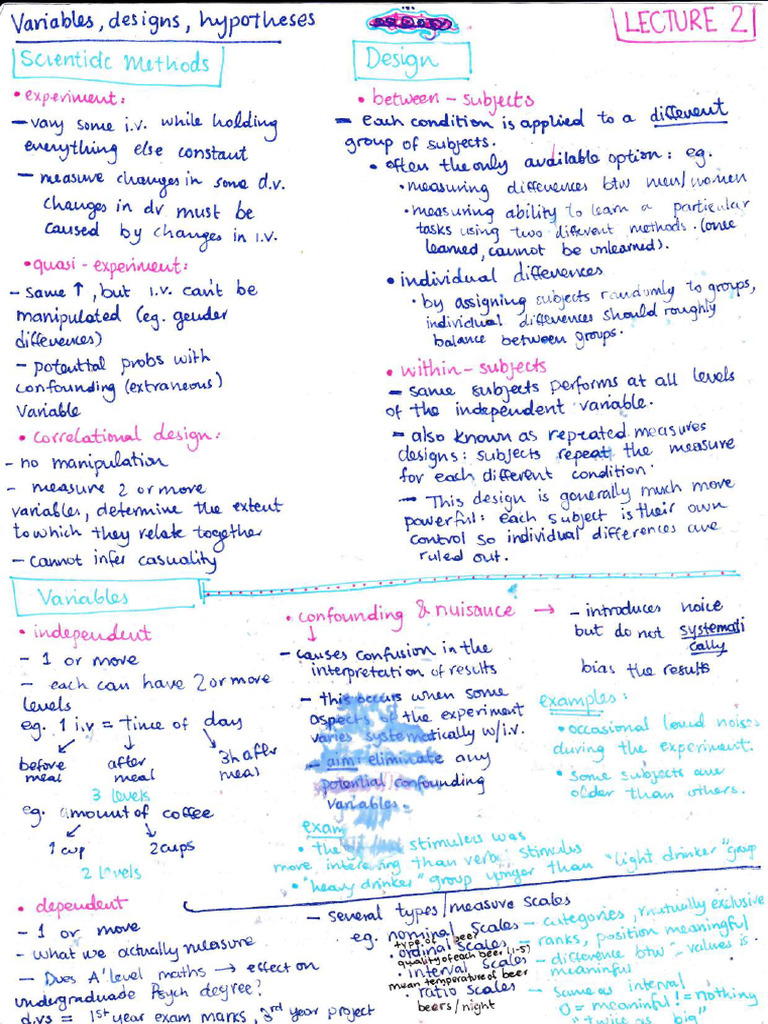 Variables, designs, hypotheses
LECTURE 2
Scientific Methods
• experiment:
– vary some i.v. while holding
everything else constant
– measure changes in some d.v.
changes in dv must be
caused by changes in i.v.
• quasi-experiment:
– same ↑, but i.v. can't be
manipulated (eg. gender
differences)
– potential probs with
confounding (extraneous)
variable
• correlational design:
– no manipulation
– measure 2 or more
variables, determine the extent
to which they relate together
– cannot infer casuality
Design
• between-subjects
– each condition is applied to a different
group of subjects.
• often the only available option: eg.
• measuring differences btw men/women
• measuring ability to learn a particular
tasks using two different methods. (once
learned, cannot be unlearned).
• individual differences
• by assigning subjects randomly to groups,
individual differences should roughly
balance between groups.
• within-subjects
– same subjects performs at all levels
of the independent variable.
– also known as repeated measures
designs: subjects repeat the measure
for each different condition.
→ This design is generally much more
powerful: each subject is their own
control so individual differences are
ruled out.
Variables
• independent
– 1 or more
– each can have 2 or more
levels
eg. 1 i.v = time of day
before meal
after meal
3h after meal
3 levels
eg. amount of coffee
1 cup 2 cups
2 levels
• dependent
– 1 or more
– what we actually measure
– Does A'level maths → effect on
undergraduate Psych degree?
d.vs = 1st year exam marks, 3rd year project
• confounding & nuisance →
– causes confusion in the
interpretation of results
– this occurs when some
aspects of the experiment
varies systematically w/i.v.
– aim: eliminate any
potential confounding
variables.
exam
• the stimulus was
more interesting than verb. stimulus
• "heavy drinker" group younger than "light drinker" group
– introduces noice
but do not systemati
cally
bias the results
examples:
• occasional loud noises
during the experiment.
• some subjects are
older than others.
– several types/measure scales
eg. nominal scales – categories, mutually exclusive
type of beer
• ordinal scales – ranks, position meaningful
quality of each beer (1-5)
• interval scales – difference btw values is
meaninful
mean temperature of beer
• ratio scales – same as interval
beers/night
0 = meaninful! = nothing
"twice as big"